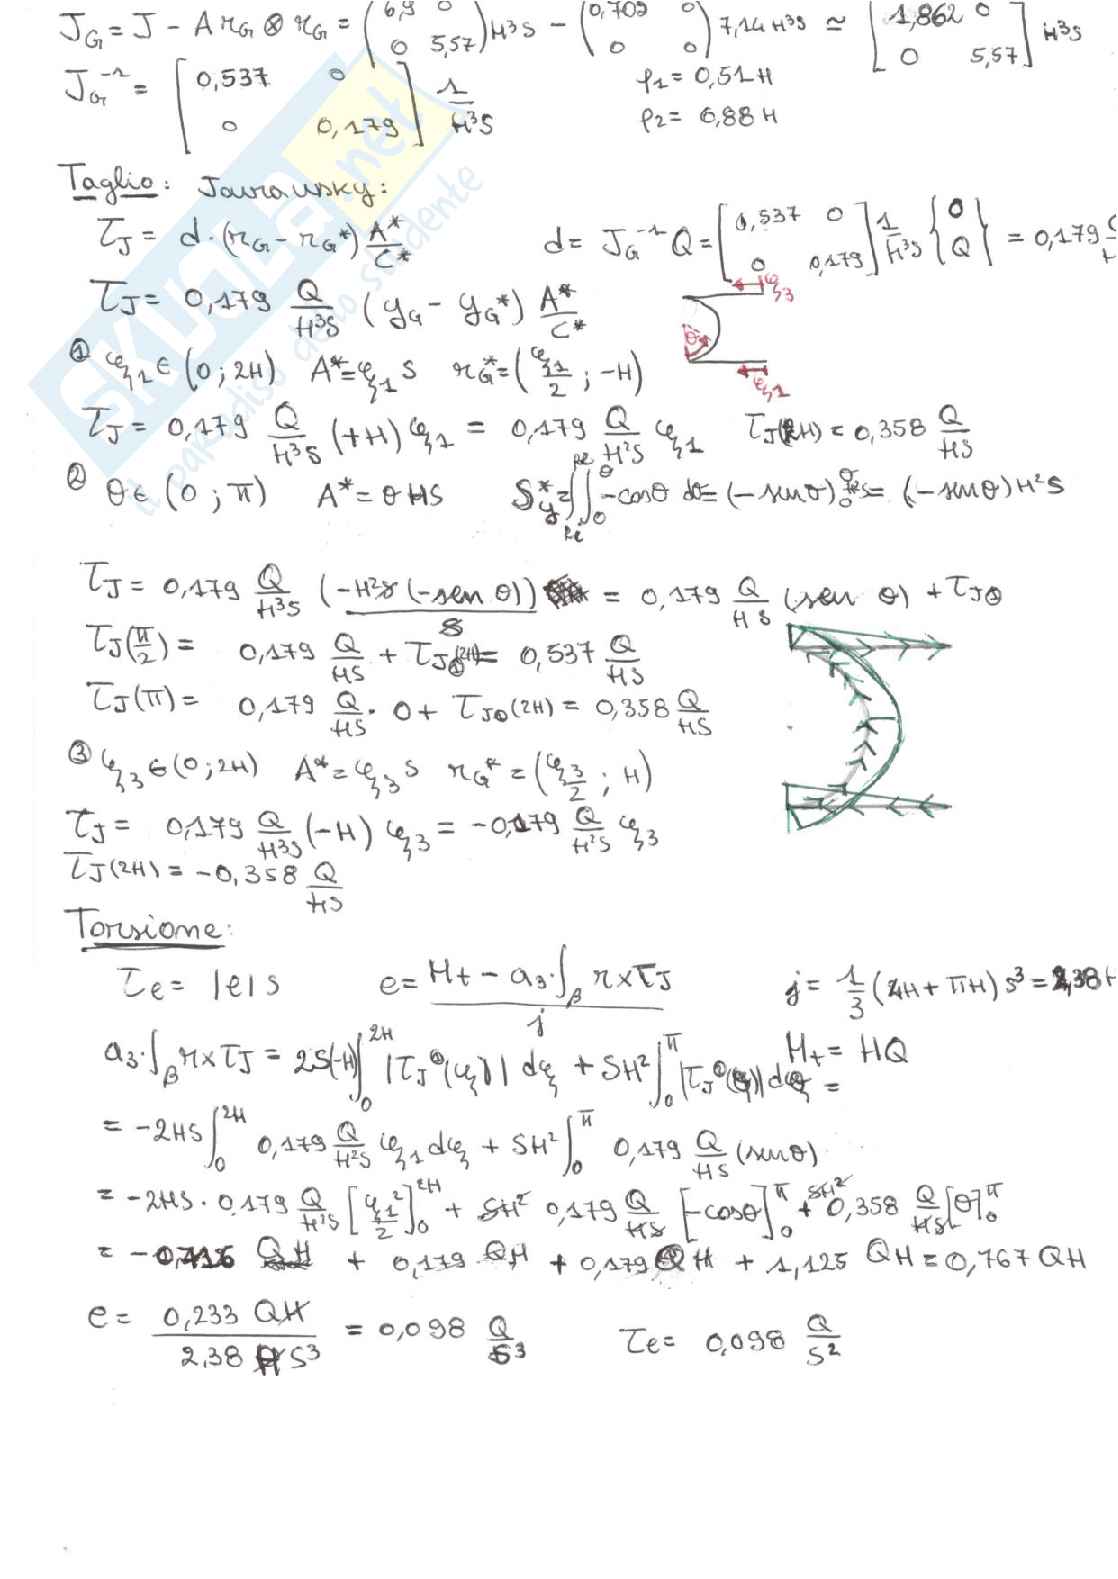 J_G = J - A r_G ⊗ r_G = (6,9 0 / 0 5,57) H³S - (0,709 0 / 0 0) 7,14 H³S ≃ [1,862 0 / 0 5,57] H³S
J_G⁻¹ = [0,537 0 / 0 0,179] 1/H³S ρ1 = 0,51 H
ρ2 = 0,88 H
Taglio: Jourawsky:
τ_J = d·(r_G - r_G*) A*/C* d = J_G⁻¹ Q = [0,537 0 / 0 0,179] 1/H³S {0 / Q} = 0,179
τ_J = 0,179 Q/H³S (y_G - y_G*) A*/C*
ξ3
θ
ξ1
① ξ1 ∈ (0; 2H) A* = ξ1 S r_G* = (ξ1/2 ; -H)
τ_J = 0,179 Q/H³S (+H) ξ1 = 0,179 Q/H²S ξ1 τ_J(2H) = 0,358 Q/HS
② θ ∈ (0 ; π) A* = θHS S*_y = ∫∫ -cosθ dθ = (-sinθ) = (-sinθ) H²S
τ_J = 0,179 Q/H³S (-H²S (-sen θ))/S = 0,179 Q/HS (sen θ) + τ_J①
τ_J(π/2) = 0,179 Q/HS + τ_J①(2H) = 0,537 Q/HS
τ_J(π) = 0,179 Q/HS · 0 + τ_J①(2H) = 0,358 Q/HS
③ ξ3 ∈ (0; 2H) A* = ξ3 S r_G* = (ξ3/2 ; H)
τ_J = 0,179 Q/H³S (-H) ξ3 = -0,179 Q/H²S ξ3
τ_J(2H) = -0,358 Q/HS
Torsione:
τe = |e| S e = (Mt - a3·∫β r×τJ)/j j = 1/3 (4H + πH) S³ = 2,38 H
a3·∫β r×τJ = 2S(-H) ∫₀²ᴴ |τJ①(ξ)| dξ + SH² ∫₀^π |τJ②(θ)| dθ = Mt = HQ
= -2HS ∫₀²ᴴ 0,179 Q/H²S ξ1 dξ + SH² ∫₀^π 0,179 Q/HS (sinθ)
= -2HS · 0,179 Q/H²S [ξ1²/2]₀²ᴴ + SH² 0,179 Q/HS [-cosθ]₀^π + SH² 0,358 Q/HS [θ]₀^π
= -0,716 QH + 0,179 QH + 0,179 QH + 1,125 QH = 0,767 QH
e = 0,233 QH / 2,38 H S³ = 0,098 Q/S³ τe = 0,098 Q/S²
SKUOLA.net
il paradiso dello studente